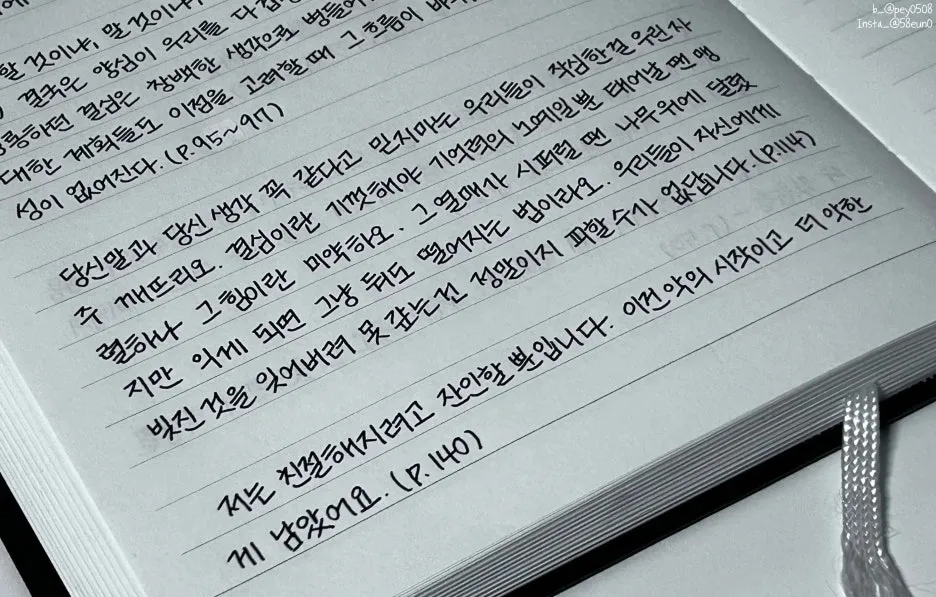 b_@pey0508
Insta_@58eun0
할 것이냐, 말 것이냐,
결국은 양심이 우리를 다
하던 결심은 창백한 생각으로 병들어
대한 계획들도 이점을 고려할 때 그 흐름이
성이 없어진다. (P.95~97)
당신말과 당신 생각 꼭 같다고 믿지마는 우리들이 작심한걸 우린 자
주 깨뜨리오. 결심이란 기껏해야 기억력의 노예일뿐 태어날 땐 맹
렬하나 그 힘이란 미약하오. 그 열매가 시퍼럴 땐 나무위에 달렸
지만 익게 되면 그냥 둬도 떨어지는 법이라오. 우리들이 자신에게
빚진 것을 잊어버려 못 갚는건 정말이지 피할 수가 없답니다. (P.114)
저는 친절해지려고 잔인할 뿐입니다. 이건 악의 시작이고 더 악한
게 남았어요. (P.140)